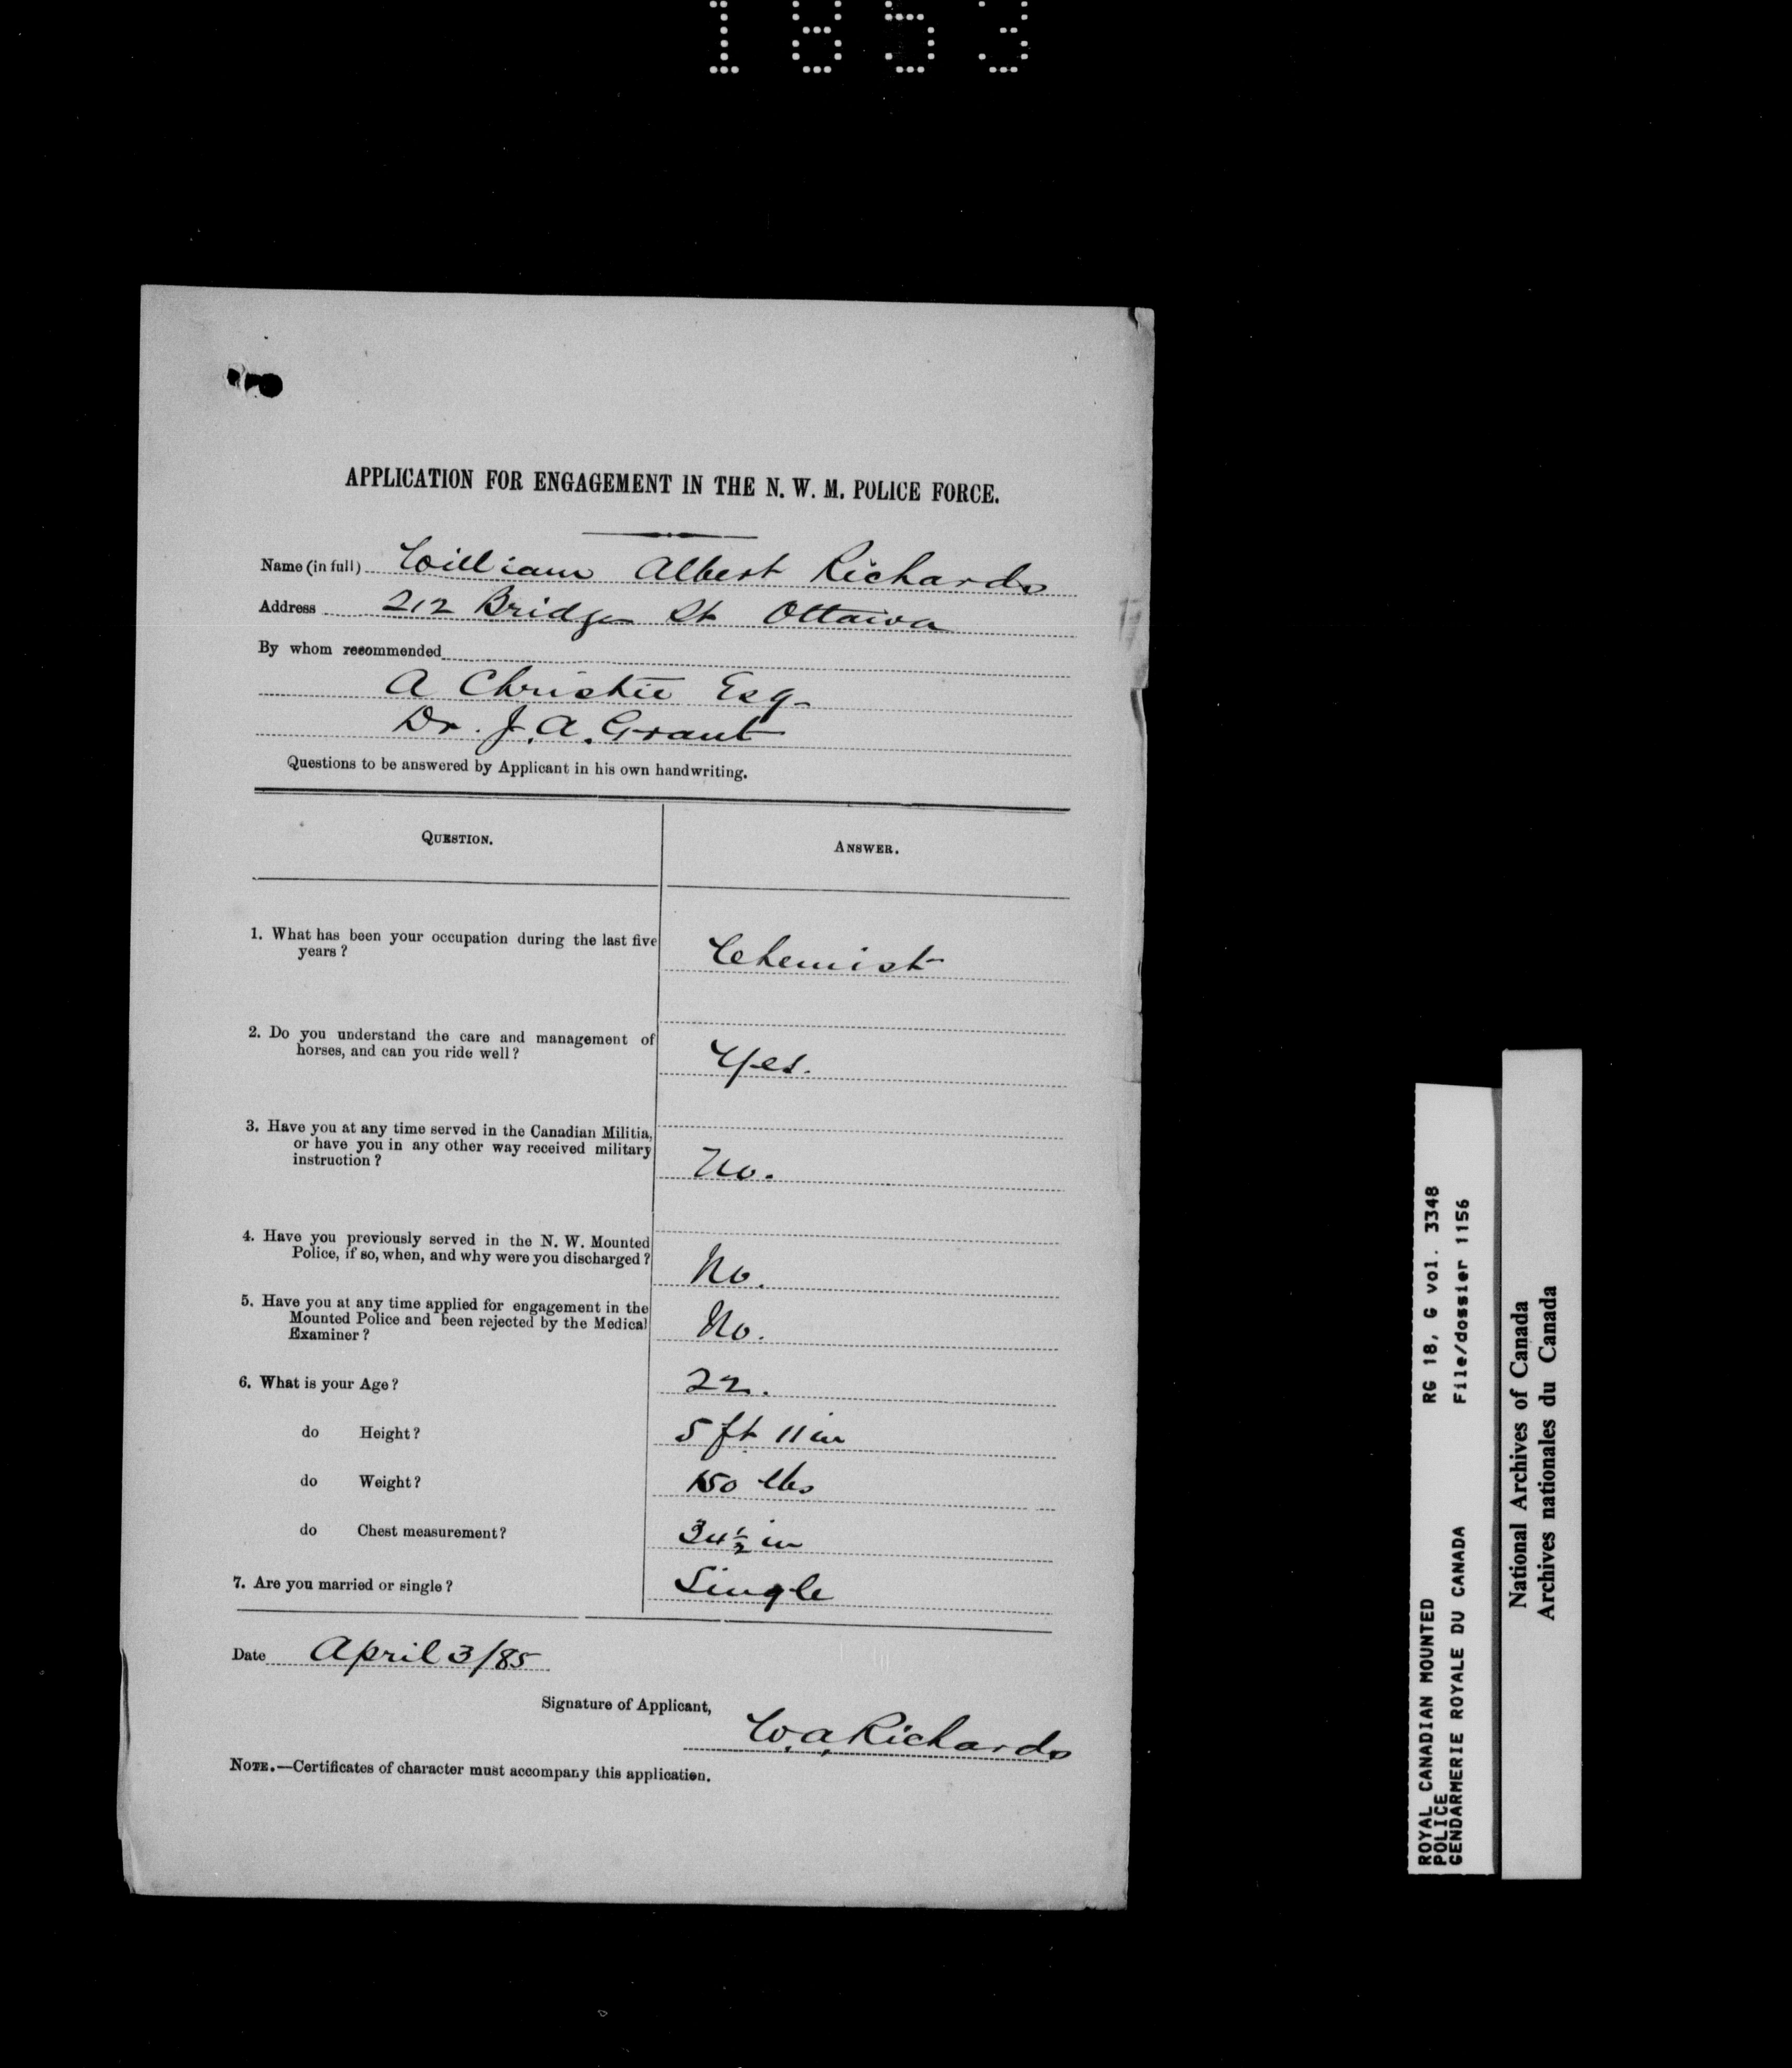 1853
APPLICATION FOR ENGAGEMENT IN THE N. W. M. POLICE FORCE.
Name (in full) William Albert Richards
Address 212 Bridge St Ottawa
By whom recommended
A Christie Esq
Dr. J. A. Grant
Questions to be answered by Applicant in his own handwriting.
QUESTION. ANSWER.
1. What has been your occupation during the last five
years? Chemist
2. Do you understand the care and management of
horses, and can you ride well? Yes.
3. Have you at any time served in the Canadian Militia,
or have you in any other way received military
instruction? No.
4. Have you previously served in the N. W. Mounted
Police, if so, when, and why were you discharged? No.
5. Have you at any time applied for engagement in the
Mounted Police and been rejected by the Medical
Examiner? No.
6. What is your Age? 22.
do Height? 5 ft 11 in
do Weight? 150 lbs
do Chest measurement? 34½ in
7. Are you married or single? Single
Date April 3/85
Signature of Applicant,
W. A. Richards
NOTE.—Certificates of character must accompany this application.
ROYAL CANADIAN MOUNTED RG 18, G vol. 3348
POLICE
GENDARMERIE ROYALE DU CANADA File/dossier 1156
National Archives of Canada
Archives nationales du Canada